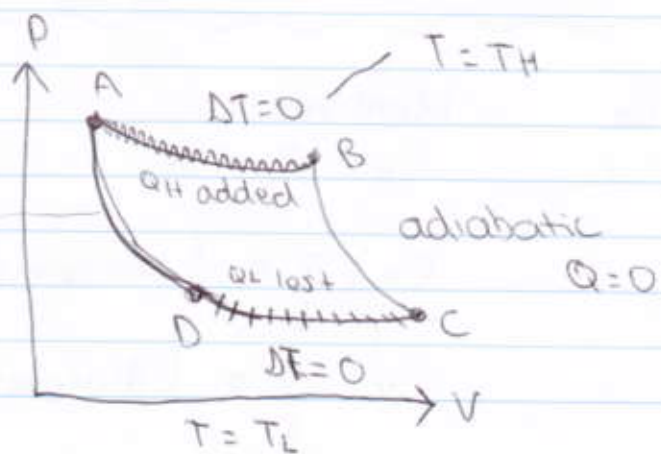 P
T = TH
A
ΔT = 0
B
QH added
adiabatic
Q = 0
QL lost
D
C
ΔT = 0
V
T = TL